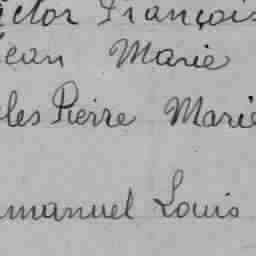 ictor François
Jean Marie
les Pierre Marie
mmanuel Louis